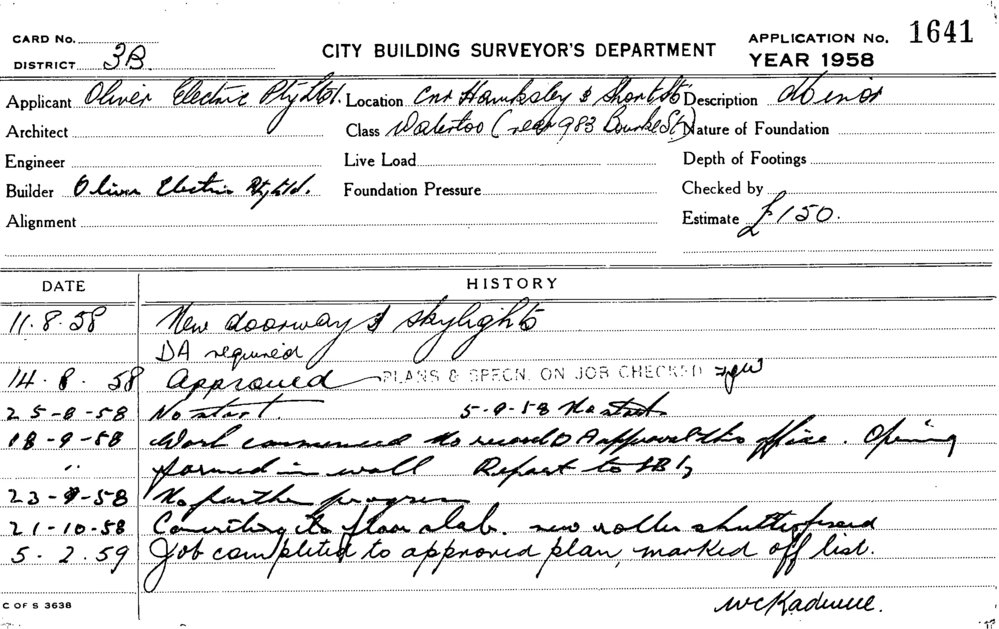 CARD No.
CITY BUILDING SURVEYOR'S DEPARTMENT
APPLICATION No. 1641
DISTRICT 3B.
YEAR 1958
Applicant Oliver Electric Pty Ltd. Location Cnr Hawksley & Short Sts Description Minor
Architect Class Waterloo (rear 983 Bourke St) Nature of Foundation
Engineer Live Load Depth of Footings
Builder Oliver Electric Pty Ltd. Foundation Pressure Checked by
Alignment Estimate £150.
DATE HISTORY
11.8.58 New doorway & skylights
DA required
14.8.58 Approved PLANS & SPECN. ON JOB CHECKED
25-8-58 No start. 5-9-58 No start
18-9-58 Work commenced No record DA approval this office. Opening
" formed in wall Report to
23-9-58 No further progress
21-10-58 floor slab. new roller shutter fixed
5.2.59 Job completed to approved plan, marked off list.
C OF S 3638